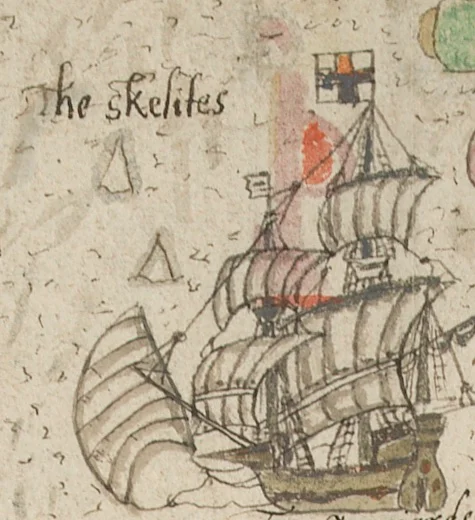 The skelites